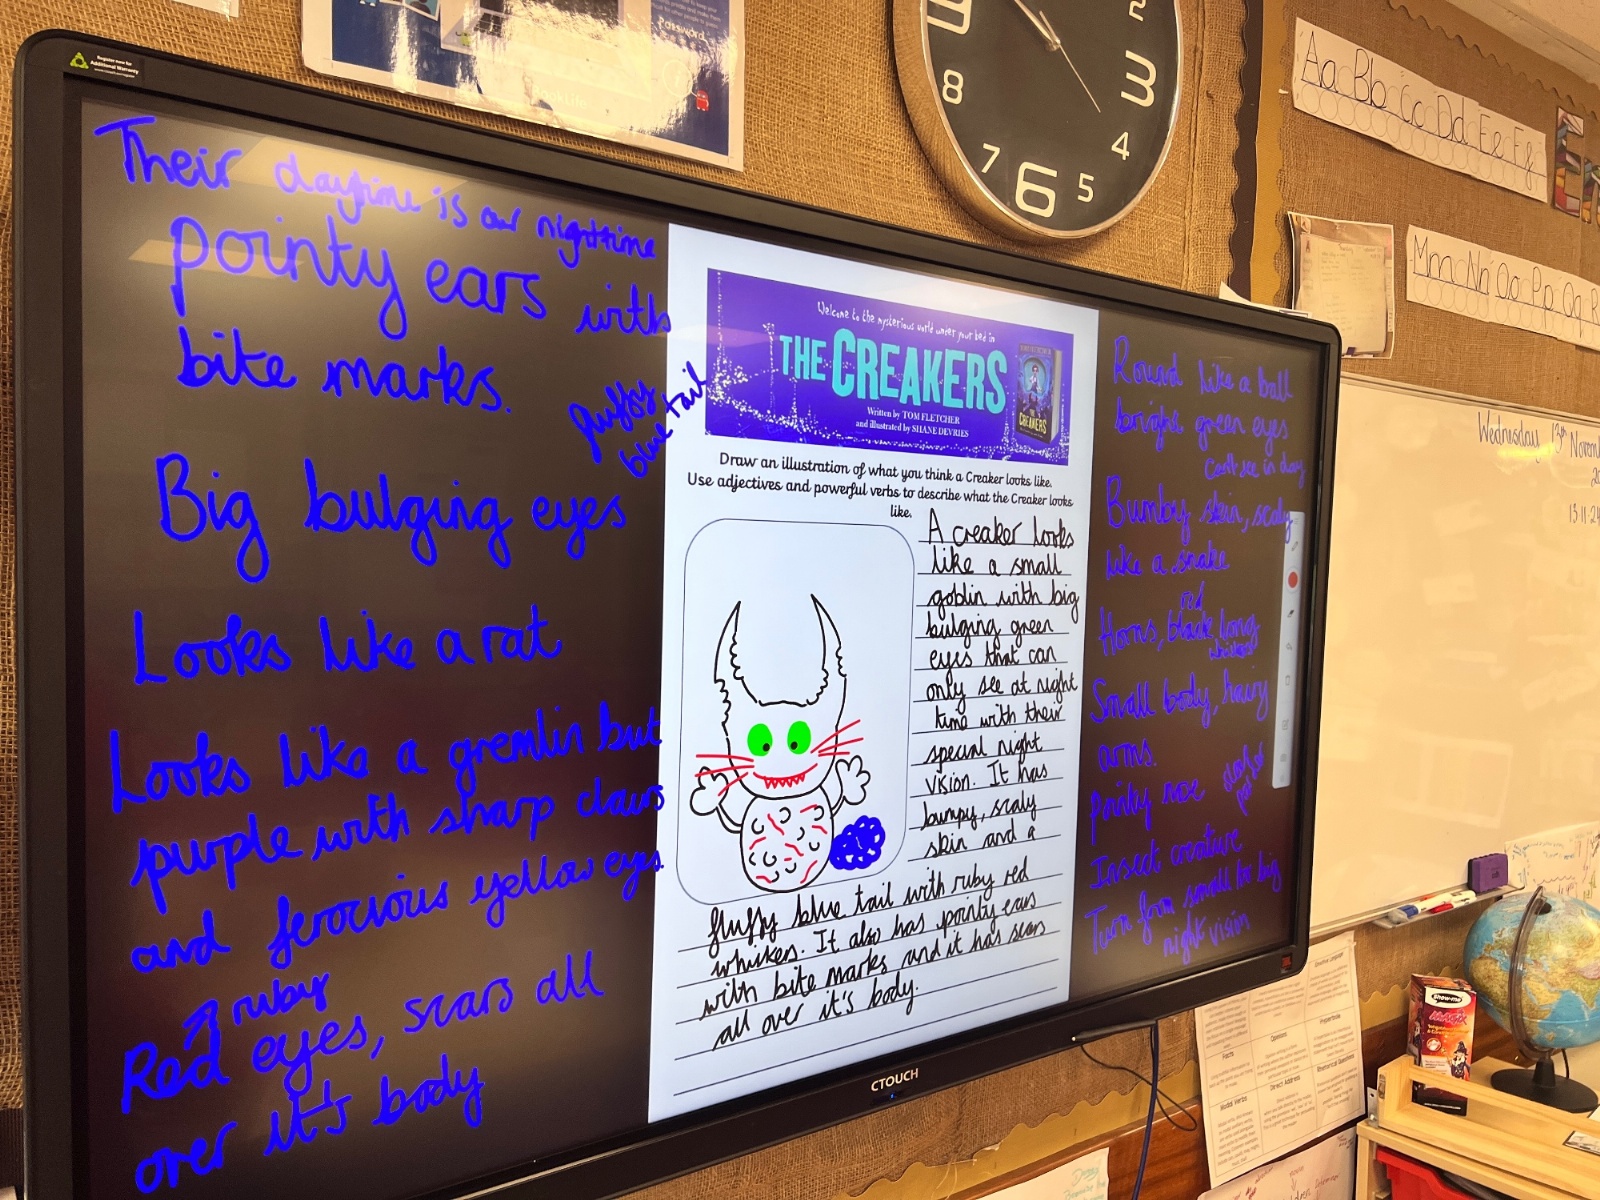 Register now for
Additional Warranty
Password
8
7
6
5
4
3
2
Aa Bb Cc Dd Ee Ff
Mm Nn Oo Pp Qq R
Their daytime is our nighttime
pointy ears with
bite marks.
fluffy
blue tail
Big bulging eyes
Looks like a rat
Looks like a gremlin but
purple with sharp claws
and ferocious yellow eyes
ruby
Red eyes, scars all
over it's body
Welcome to the mysterious world under your bed in
THE CREAKERS
Written by TOM FLETCHER
and illustrated by SHANE DEVRIES
THE
CREAKERS
Draw an illustration of what you think a Creaker looks like.
Use adjectives and powerful verbs to describe what the Creaker looks
like.
A creaker looks
like a small
goblin with big
bulging green
eyes that can
only see at night
time with their
special night
vision. It has
bumpy, scaly
skin and a
fluffy blue tail with ruby red
whiskers. It also has pointy ears
with bite marks and it has scars
all over it's body.
Round like a ball
bright green eyes
Can't see in day
Bumby skin, scaly
like a snake
red
Horns, black long
whiskers
Small body, hairy
arms.
Pointy nose
Insect creature
Turn from small to big
night vision
CTOUCH
Wednesday 13th Novem
13.11.24
Show-me
Facts
Opinions
Direct Address
Rhetorical Questions
Modal Verbs